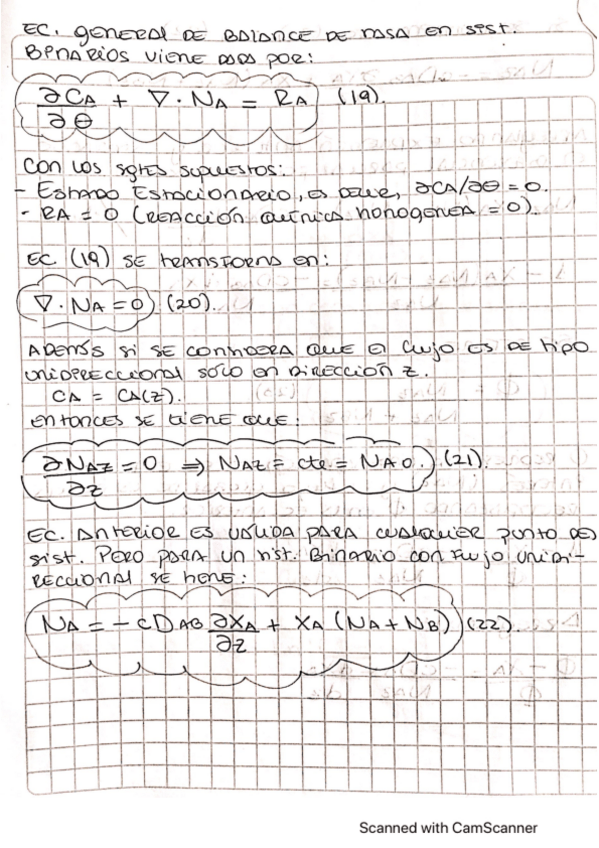 EC. general de balance de masa en sist.
Binarios viene dada por:
∂CA/∂θ + ∇·NA = RA (19).
Con los sgtes supuestos:
- Estado Estacionario, es decir, ∂CA/∂θ = 0.
- RA = 0 (reacción química homogénea = 0).
EC (19) se transforma en:
∇·NA = 0 (20).
Además si se considera que el flujo es de tipo
unidireccional solo en dirección z.
CA = CA(z).
entonces se tiene que:
∂NAz/∂z = 0 ⇒ NAz = cte = NA0. (21).
EC. anterior es válida para cualquier punto del
sist. Pero para un sist. Binario con flujo unidi-
reccional se tiene:
NA = -cDAB ∂XA/∂z + XA (NA + NB) (22).
Scanned with CamScanner